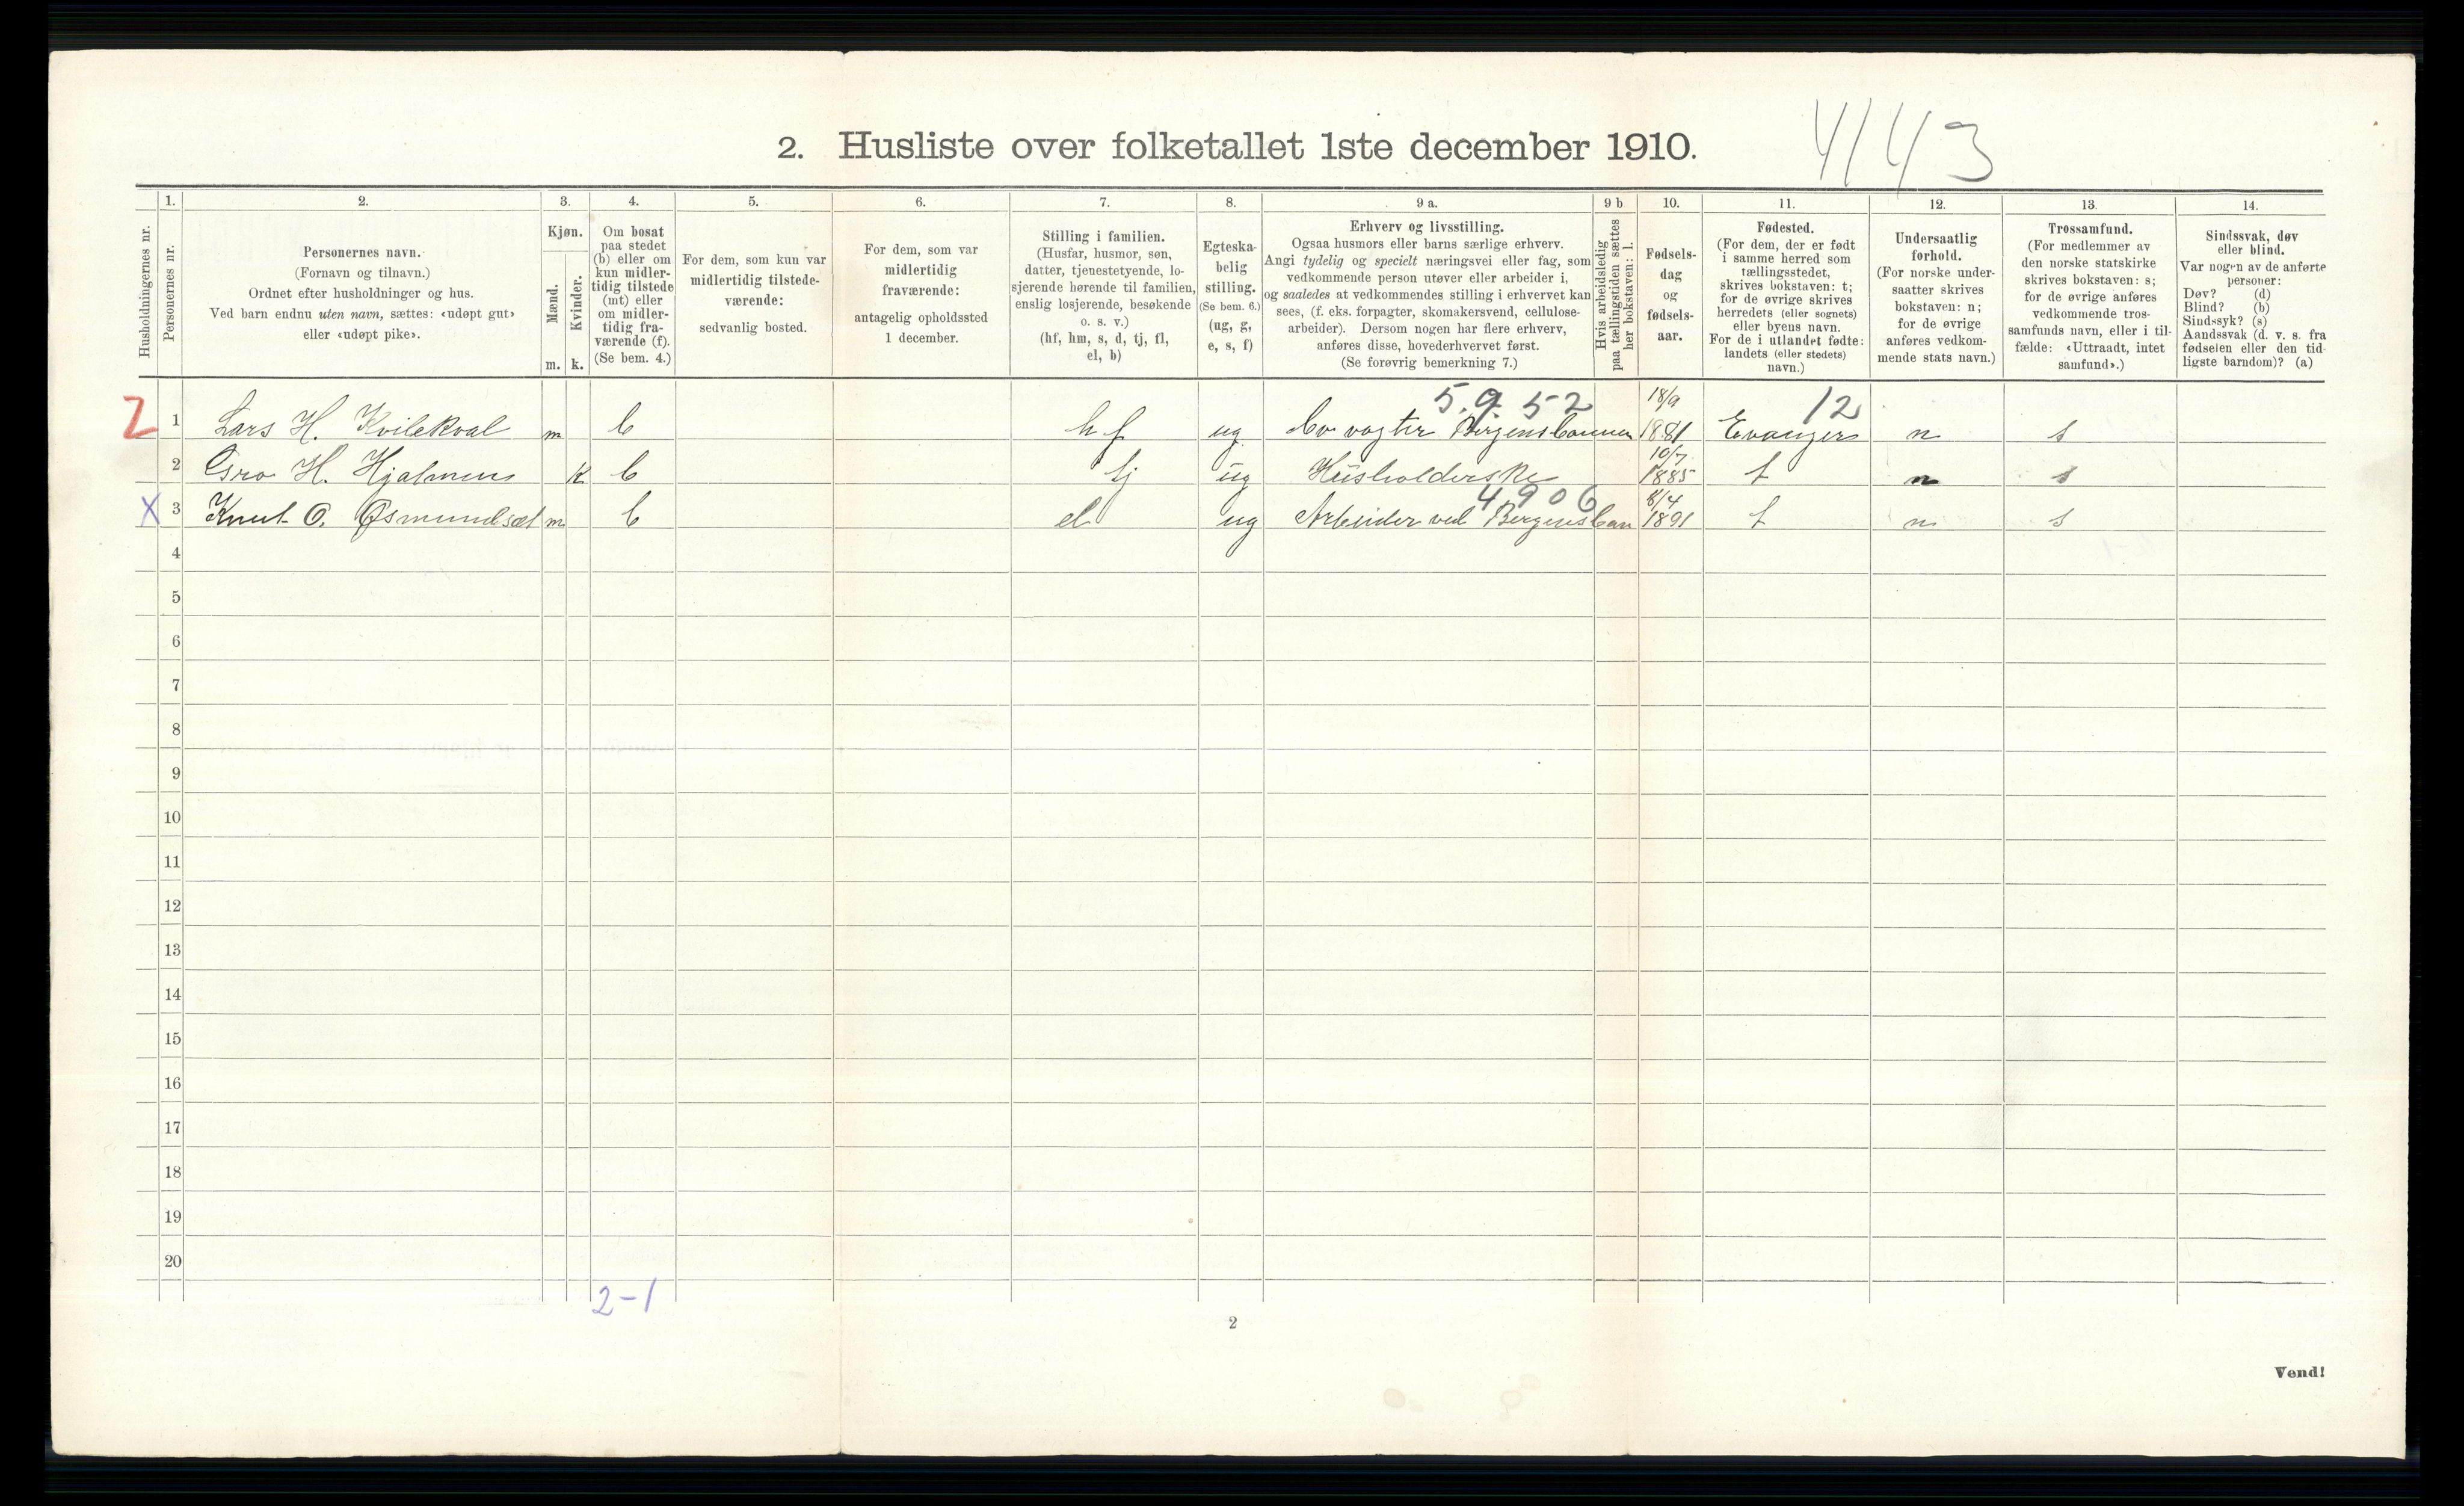 2. Husliste over folketallet 1ste december 1910. 4143
Husholdningernes nr.
1.
Personernes nr.
2.
Personernes navn.
(Fornavn og tilnavn.)
Ordnet efter husholdninger og hus.
Ved barn endnu uten navn, sættes: «udøpt gut»
eller «udøpt pike».
3.
Kjøn.
Mænd.
m.
Kvinder.
k.
4.
Om bosat
paa stedet
(b) eller om
kun midler-
tidig tilstede
(mt) eller
om midler-
tidig fra-
værende (f).
(Se bem. 4.)
5.
For dem, som kun var
midlertidig tilstede-
værende:
sedvanlig bosted.
6.
For dem, som var
midlertidig
fraværende:
antagelig opholdssted
1 december.
7.
Stilling i familien.
(Husfar, husmor, søn,
datter, tjenestetyende, lo-
sjerende hørende til familien,
enslig losjerende, besøkende
o. s. v.)
(hf, hm, s, d, tj, fl,
el, b)
8.
Egteska-
belig
stilling.
(Se bem. 6.)
(ug, g,
e, s, f)
9 a.
Erhverv og livsstilling.
Ogsaa husmors eller barns særlige erhverv.
Angi tydelig og specielt næringsvei eller fag, som
vedkommende person utøver eller arbeider i,
og saaledes at vedkommendes stilling i erhvervet kan
sees, (f. eks. forpagter, skomakersvend, cellulose-
arbeider). Dersom nogen har flere erhverv,
anføres disse, hovederhvervet først.
(Se forøvrig bemerkning 7.)
9 b
Hvis arbeidsledig
paa tællingstiden sættes
her bokstaven: l.
10.
Fødsels-
dag
og
fødsels-
aar.
11.
Fødested.
(For dem, der er født
i samme herred som
tællingsstedet,
skrives bokstaven: t;
for de øvrige skrives
herredets (eller sognets)
eller byens navn.
For de i utlandet fødte:
landets (eller stedets)
navn.)
12.
Undersaatlig
forhold.
(For norske under-
saatter skrives
bokstaven: n;
for de øvrige
anføres vedkom-
mende stats navn.)
13.
Trossamfund.
(For medlemmer av
den norske statskirke
skrives bokstaven: s;
for de øvrige anføres
vedkommende tros-
samfunds navn, eller i til-
fælde: «Uttraadt, intet
samfund».)
14.
Sindssvak, døv
eller blind.
Var nogen av de anførte
personer:
Døv? (d)
Blind? (b)
Sindssyk? (s)
Aandssvak (d. v. s. fra
fødselen eller den tid-
ligste barndom)? (a)
5.9 52 18/9 12
1 Lars H. Kvilekval m b hf ug. Bergensbanen 1881 Evanger n s
10/7
2 Gro H. Hjalmens k b tj ug Husholderske 1885 t n s
4906 8/4
X 3 Knut O. Øsmundsæt m b el ug Arbeider ved Bergensban 1891 t n s
4
5
6
7
8
9
10
11
12
13
14
15
16
17
18
19
20
2-1
2
Vend!